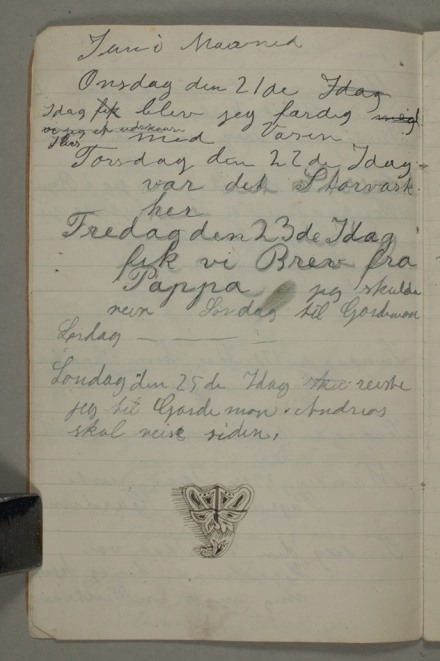 Juni Maaned
Onsdag den 21de Idag
Idag fik blev jeg færdig meg
med Varen
Torsdag den 22de Idag
var det Storvask
her
Fredag den 23de Idag
fik vi Brev fra
Pappa jeg skulde
reise Søndag til Gardemon
Lørdag — — — —
Søndag den 25de Idag reiste
jeg til Gardemon. Andreas
skal reise siden.